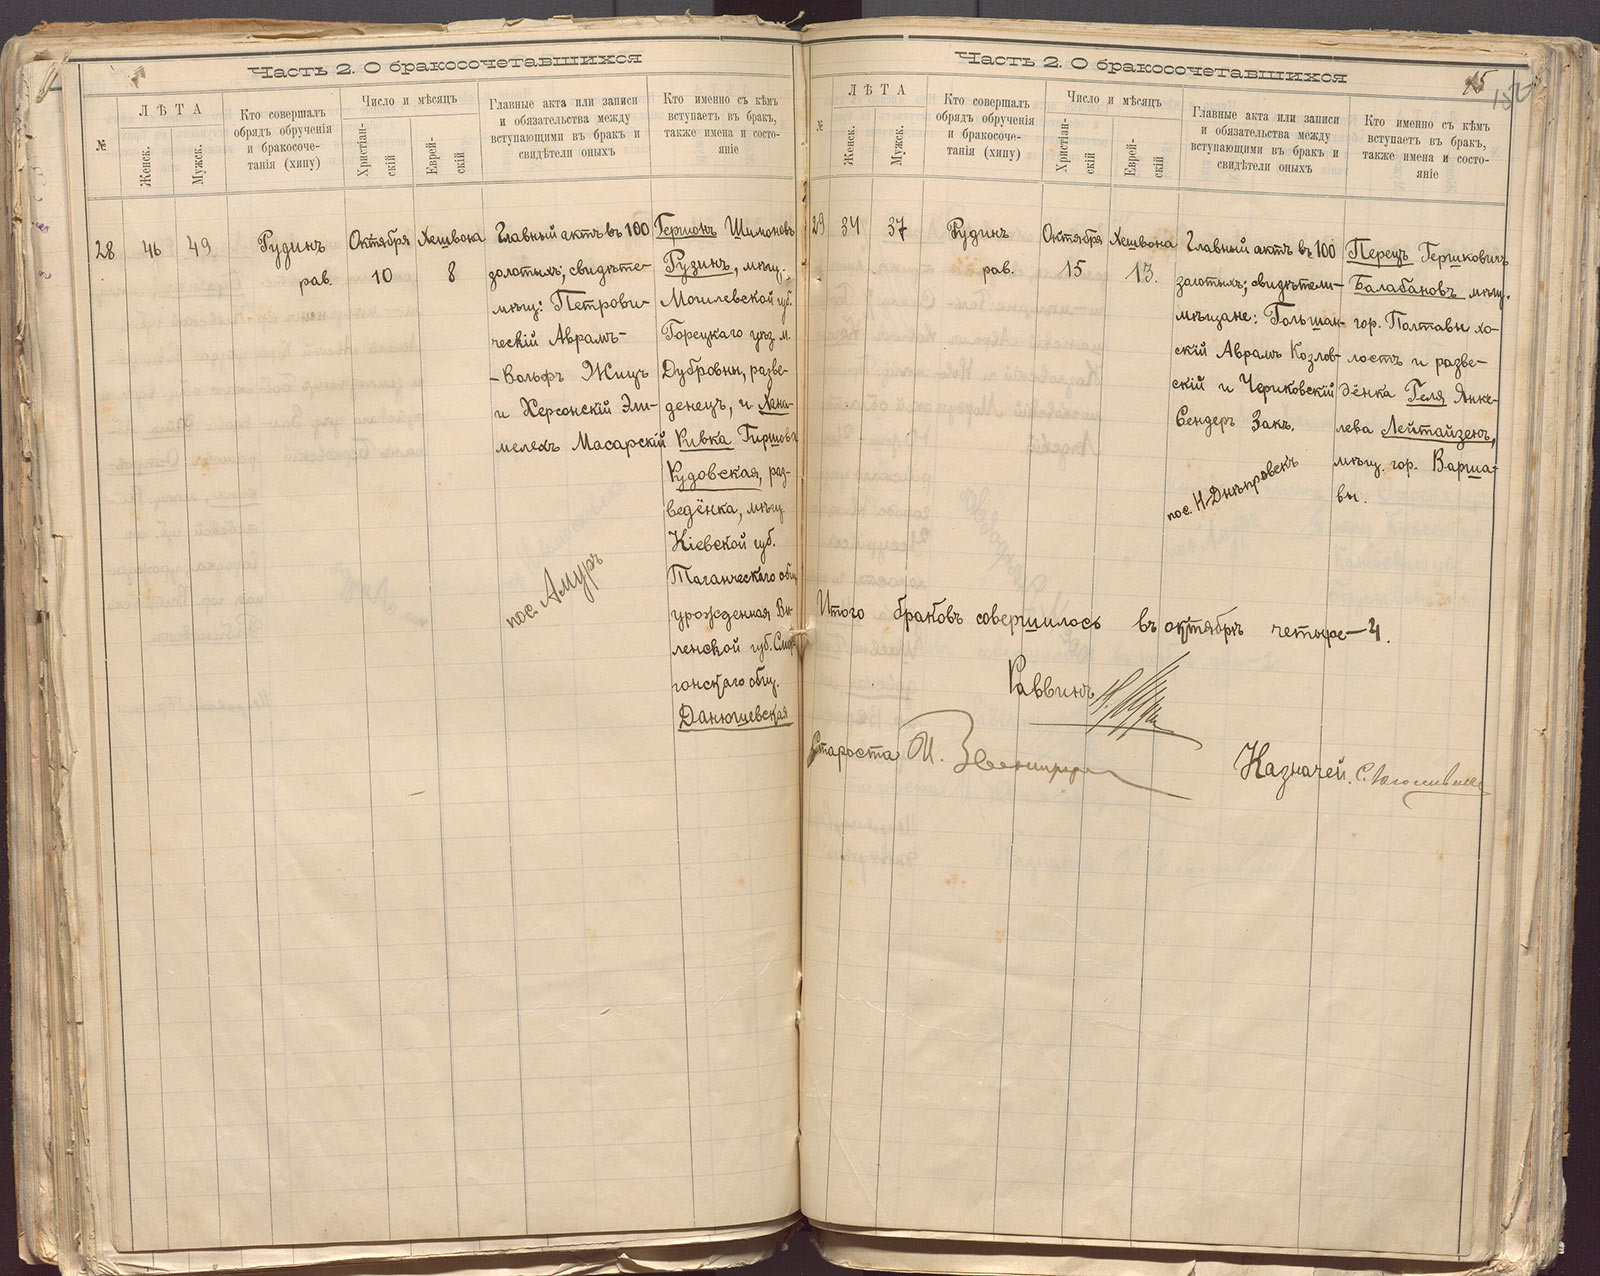 Часть 2. О бракосочетавшихся
№
ЛѢТА
Женск.
Мужск.
Кто совершалъ
обрядъ обрученія
и бракосоче-
танія (хипу)
Число и мѣсяцъ
Христіан-
скій
Еврей-
скій
Главные акта или записи
и обязательства между
вступающими въ бракъ и
свидѣтели оныхъ
Кто именно съ кѣмъ
вступаетъ въ бракъ,
также имена и состо-
яніе
28
46
49
Рудинъ
рав.
Октября
10
Хешвона
8
Главный актъ въ 100
золотыхъ; свидѣте-
мѣщ: Петрови-
ческій Аврамъ-
-Вольфъ Жицъ
и Херсонскій Эли-
мелехъ Масарскій
пос. Амуръ
Гершонъ Шимоновъ
Рузинъ, мѣщ.
Могилевской губ.
Горецкаго уѣз. м.
Дубровны, разве-
денецъ, и Хана-
Ривка Гиршова
Рудовская, раз-
ведёнка, мѣщ.
Кіевской губ.
Таганческаго общ.
урожденная Ви-
ленской губ. Смор-
гонскаго общ.
Данюшевская
Часть 2. О бракосочетавшихся
15
№
ЛѢТА
Женск.
Мужск.
Кто совершалъ
обрядъ обрученія
и бракосоче-
танія (хипу)
Число и мѣсяцъ
Христіан-
скій
Еврей-
скій
Главные акта или записи
и обязательства между
вступающими въ бракъ и
свидѣтели оныхъ
Кто именно съ кѣмъ
вступаетъ въ бракъ,
также имена и состо-
яніе
29
34
37
Рудинъ
рав.
Октября
15
Хешвона
13.
Главный актъ въ 100
золотыхъ; свидѣтели-
мѣщане: Гольшан-
скій Аврамъ Козлов-
скій и Чериковскій
Сендеръ Закъ.
пос. Н-Днѣпровскъ
Перецъ Гершковичъ
Балабановъ мѣщ.
гор. Полтавы хо-
лостъ и разве-
дёнка Геля Янке-
лева Лейтайзенъ,
мѣщ. гор. Варша-
вы.
Итого браковъ совершилось въ октябрѣ четыре-4.
Раввинъ
Староста
Казначей